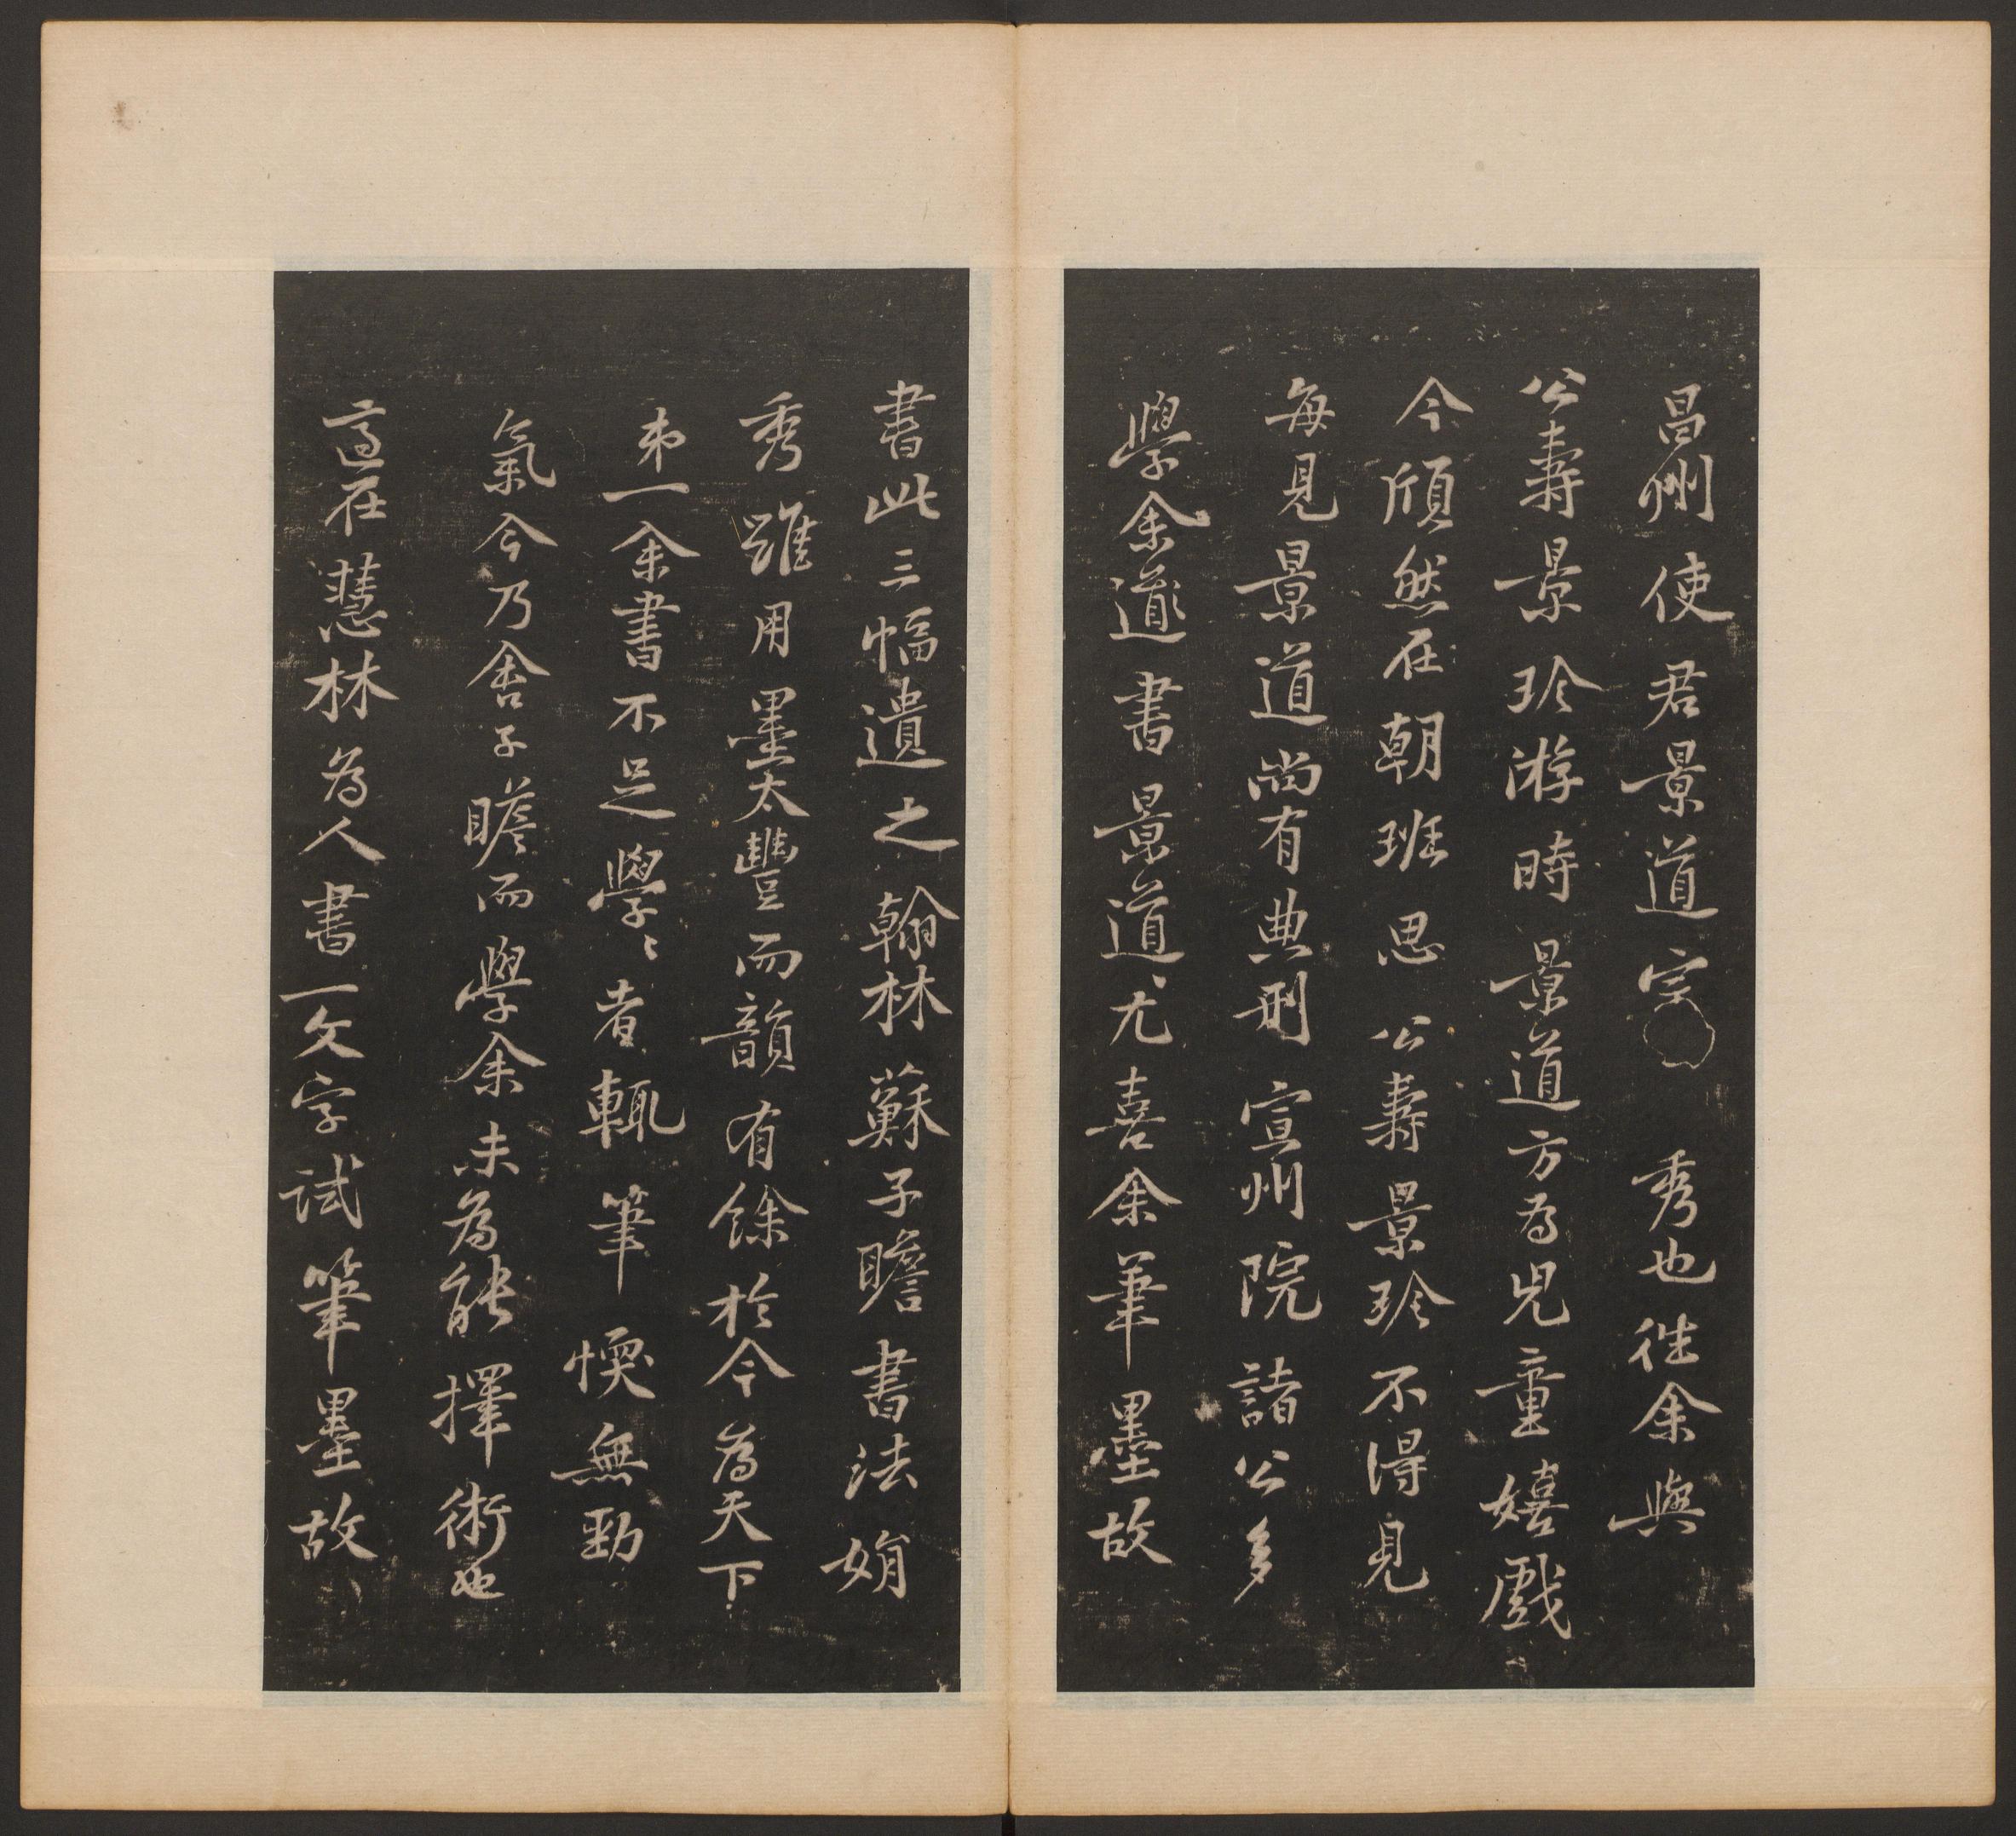 昌州使君景道宗秀也往余與
公壽景珍游時景道方為兒童嬉戲
今頎然在朝班思公壽景珍不得見
每見景道尚有典刑宣州院諸公多
學余道書景道尤喜余筆墨故
書此三幅遺之翰林蘇子瞻書法娟
秀雖用墨太豐而韻有餘於今為天下
弟一余書不足學〻者輒筆愞無勁
氣今乃舍子瞻而學余未為能擇術也
適在慧林為人書一文字試筆墨故